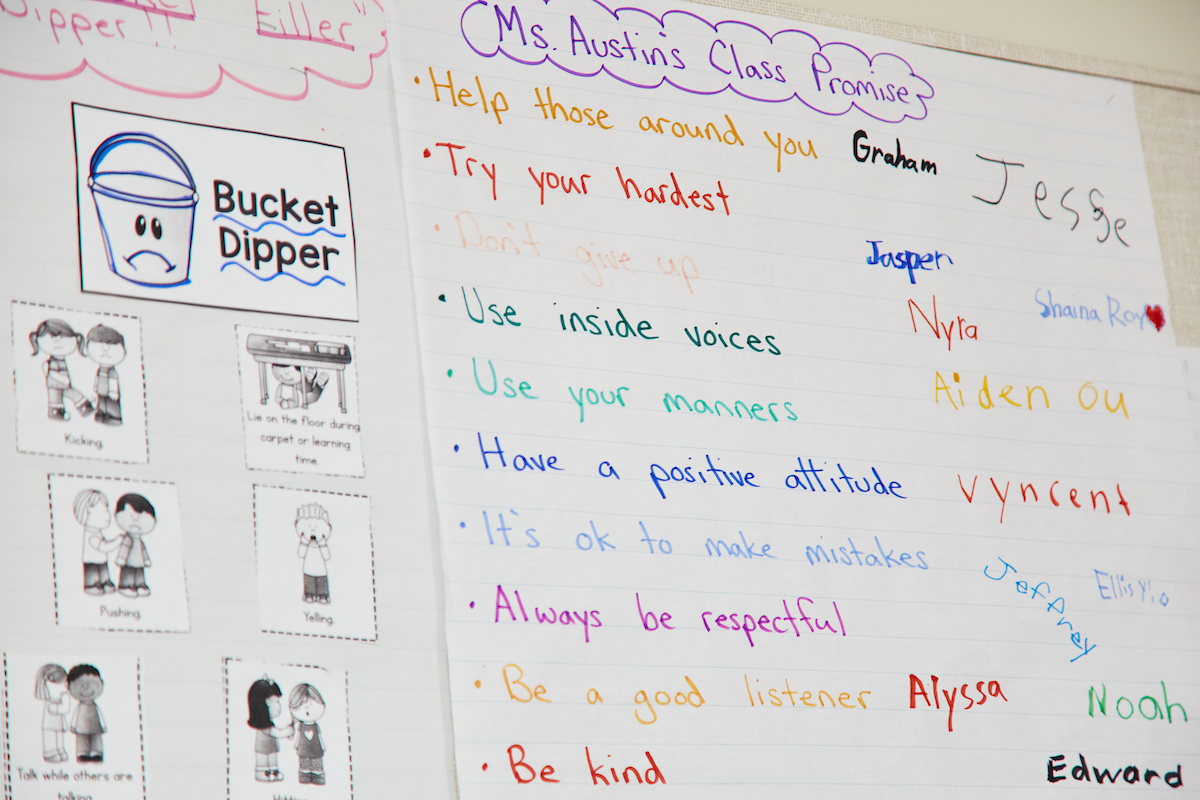 Dipper!!
Filler
Bucket
Dipper
Kicking.
Lie on the floor during
carpet or learning
time.
Pushing.
Yelling.
Talk while others are
talking.
Ms. Austin's Class Promise
• Help those around you
Graham
Jesse
• Try your hardest
• Don't give up
Jasper
Shaina Roy
• Use inside voices
Nyra
• Use your manners
Aiden Ou
• Have a positive attitude
Vyncent
• It's ok to make mistakes
• Always be respectful
• Be a good listener
Alyssa
Noah
• Be kind
Edward